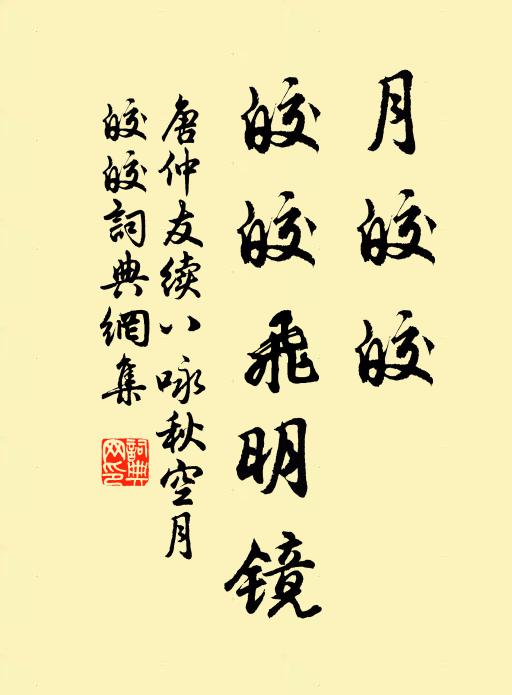 月皎皎
皎皎飛明镜
唐仲友續八咏秋空月
皎皎詞典網集
詞典
网印